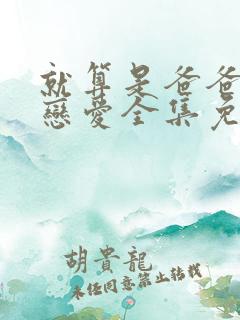 就算是爸爸
戀愛全集免
胡貴龍
未经同意禁止转载